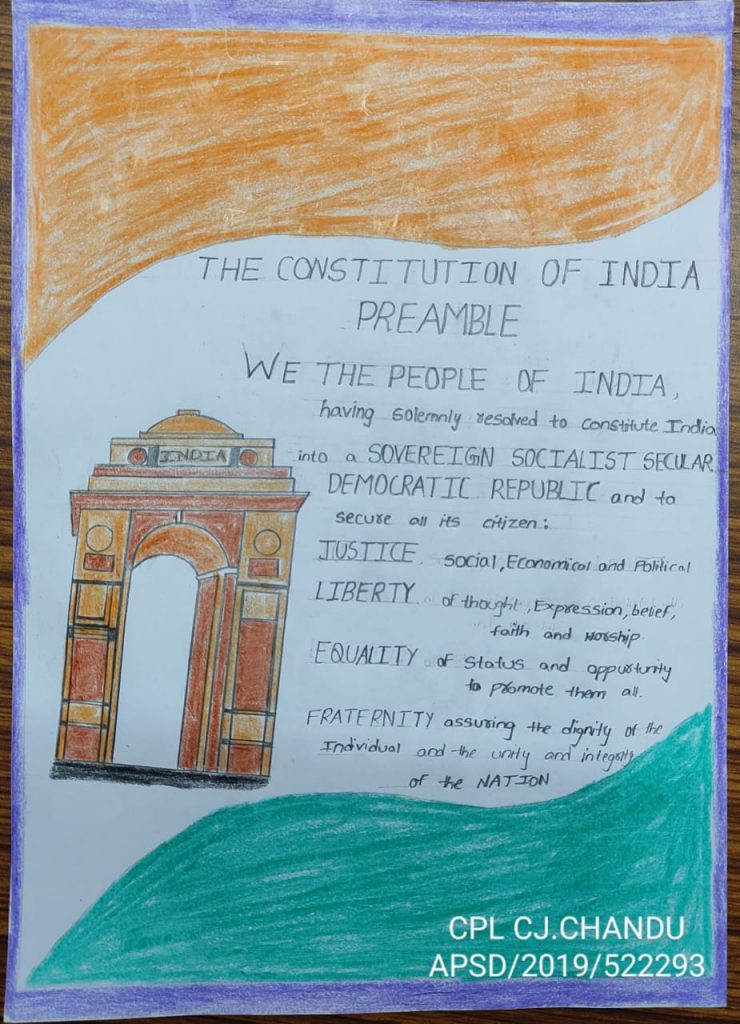 THE CONSTITUTION OF INDIA
PREAMBLE
WE THE PEOPLE OF INDIA,
having solemnly resolved to constitute India
into a SOVEREIGN SOCIALIST SECULAR
DEMOCRATIC REPUBLIC and to
secure all its citizen:
INDIA
JUSTICE, social, Economical and Political
LIBERTY of thought, Expression, belief,
faith and worship
EQUALITY of status and oppurtunity
to promote them all.
FRATERNITY assuring the dignity of the
Individual and the unity and integrity
of the NATION
CPL CJ.CHANDU
APSD/2019/522293